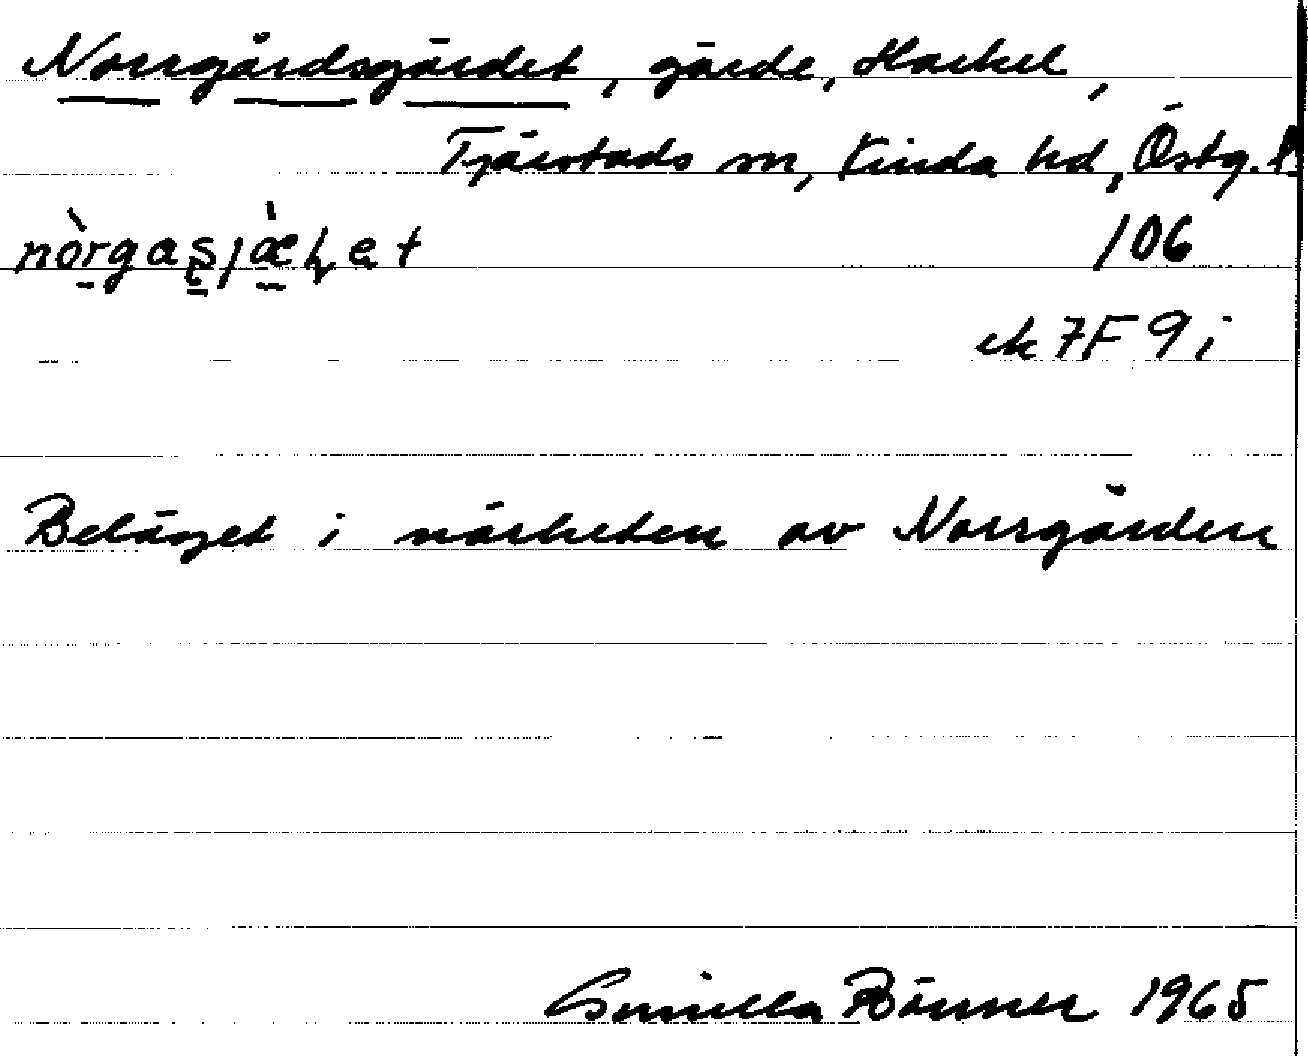 Norrgårdsgärdet, gärde, Harkel,
Tjärstads sn, Kinda hd, Östg. l.
106
ek 7F 9i
Beläget i närheten av Norrgården
Gunilla Bönner 1965